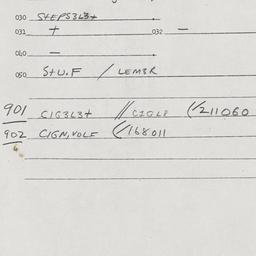 030 STEPS3L3+
031 + 032 -
040 -
050 S+U.F / LEM3R
901 C1G3L3+ // C2GLP (/211060
902 C1GN,VOLF (/168011